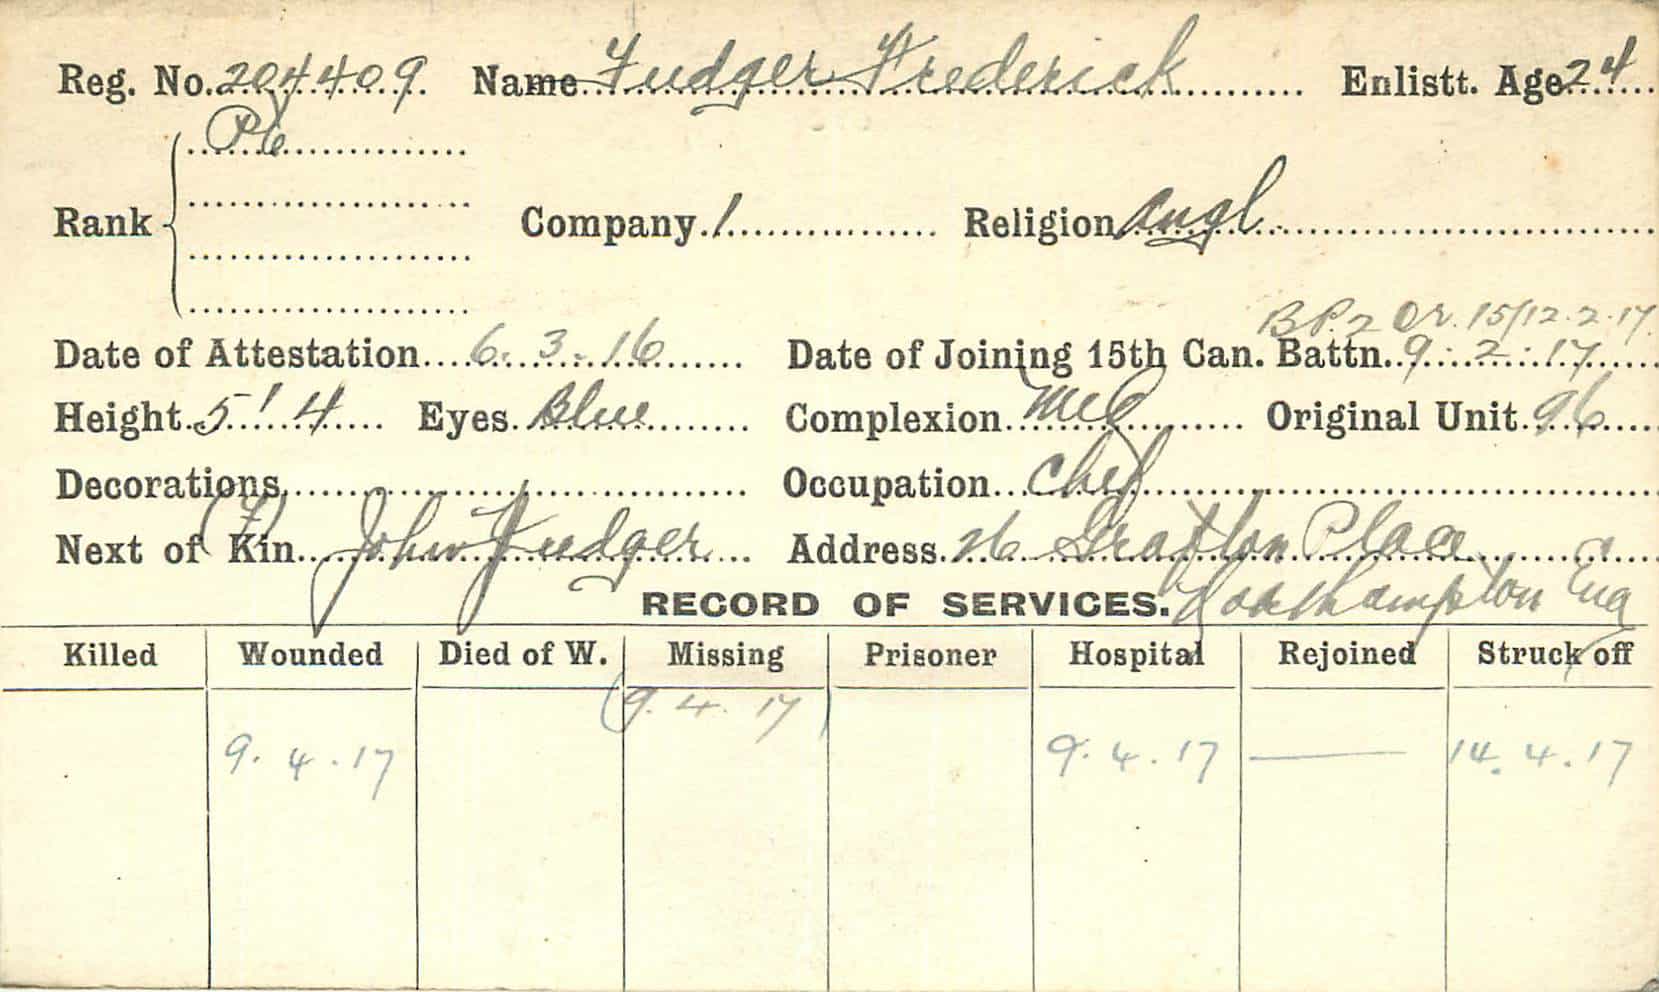 Reg. No. 204409. Name Fudger Frederick Enlistt. Age 24
Pte
Rank Company 1 Religion Angl
B.P. 2 Or. 15/12.2.17.
Date of Attestation 6. 3. 16 Date of Joining 15th Can. Battn. 9. 2. 17
Height 5' 4 Eyes Blue Complexion Med Original Unit 96
Decorations Occupation Chef
Next of Kin (F) John Fudger Address 26 Grafton Place
RECORD OF SERVICES. Northampton Eng
Killed Wounded Died of W. Missing Prisoner Hospital Rejoined Struck off
(9. 4. 17)
9. 4. 17 9. 4. 17 — 14. 4. 17